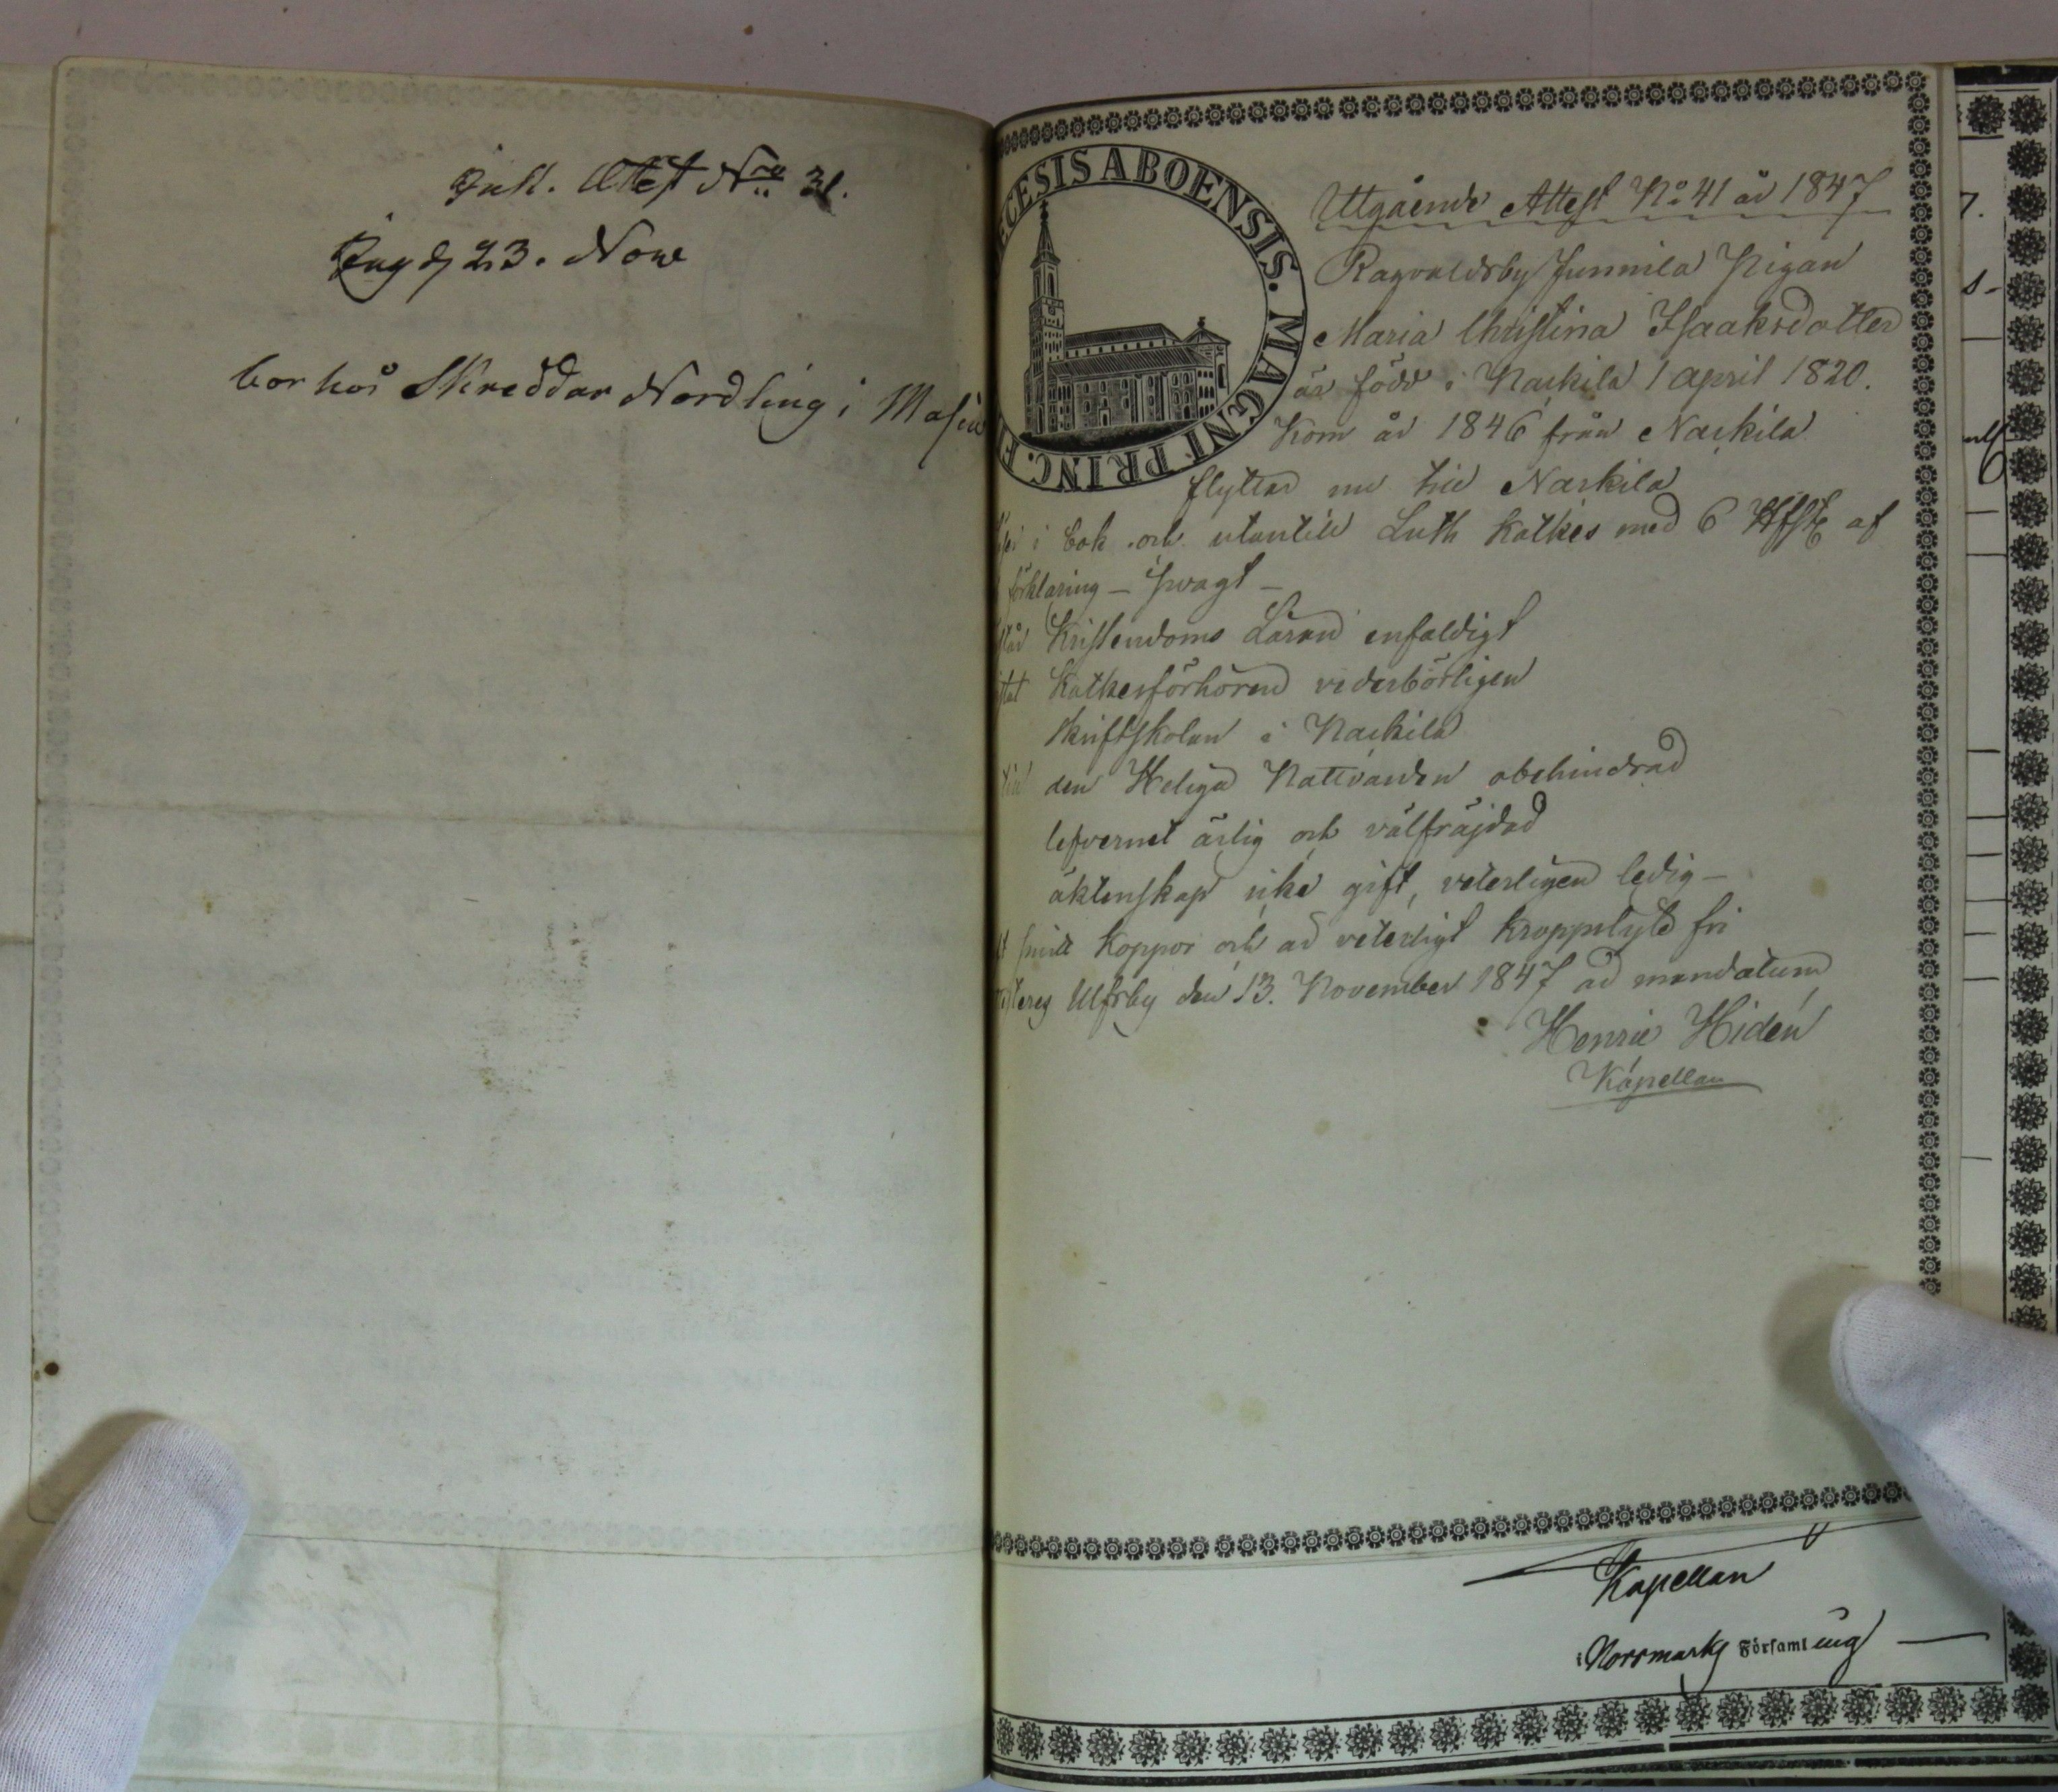 Inst. Attest No 31.
Ing d 23. Nov
bor hos Skreddar Nordling i
ECESIS ABOENSIS. MAGNI PRINC. F
Utgående Attest No 41 år 1847
Ragvaldsby Junnila Pigan
Maria Christina Isaaksdotter
är född i Nackila 1 april 1820.
Kom år 1846 från Nackila
flyttar nu till Nackila
i bok och utantill Luth Katkes med 6 af
förklaring – swagt –
Kristendoms Läran enfaldigt
Katkesförhören vederbörligen
Skriftskolan i Nackila
till den Heliga Nattvarden obehindrad
lefvernet ärlig och välfräjdad
äktenskap icke gift, veterligen ledig –
Koppor och ad veterligt kroppslyte fri
Ulfsby den 13. November 1847 ad mandatum
Henric Hidén
Kapellan
Kapellan
i Norrmark Församling